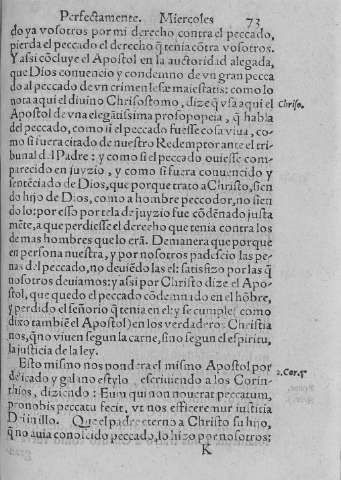 Perfectamente. Miercoles 73
do ya vosotros por mi derecho contra el peccado,
pierda el peccado el derecho q̃ tenia cõtra vosotros.
Y assi cõcluye el Apostol en la auctoridad alegada,
que Dios convencio y condemno de vn gran pecca
do al peccado de vn crimen lesæ maiestatis: como lo
nota aqui el diuino Chrisostomo, dize q̃ vsa aqui el
Chriso.
Apostol de vna elegãtissima prosopopeia, q̃ habla
del peccado, como si el peccado fuesse cosa viua, co-
mo si fuera citado de nuestro Redemptor ante el tri
bunal del Padre: y como si el peccado ouiesse com-
parecido en juyzio, y como si fuera conuencido y
sentẽciado de Dios, que porque trato a Christo, siẽn
do hijo de Dios, como a hombre peccodor, no sien
do lo: por esso por tela de juyzio fue cõdẽnado justa
mẽte, a que perdiesse el derecho que tenia contra los
de mas hombres que lo erã. De manera que porque
en persona nuestra, y por nosotros padescio las pe-
nas del peccado, no deuiẽdo las el: satisfizo por las q̃
nosotros deuiamos: y assi por Christo dize el Apo-
stol, que quedo el peccado cõdemnado en el hõbre,
y perdido el señorio q̃ tenia en el: y se cumple (como
dixo tambiẽ el Apostol) en los verdaderos Christia
nos, q̃ no viuen segun la carne, sino segun el espiritu,
la justicia de la ley.
Esto mismo nos pondera el mismo Apostol por
2. Cor. 5
delicado y galano estylo, escriuiendo a los Corin-
thios, diziendo: Eum qui non nouerat peccatum,
pro nobis peccatũ fecit, vt nos efficeremur iustitia
Dei in illo. Que el padre eterno a Christo su hijo,
q̃ no auia conoscido peccado, lo hizo por nosotros:
K